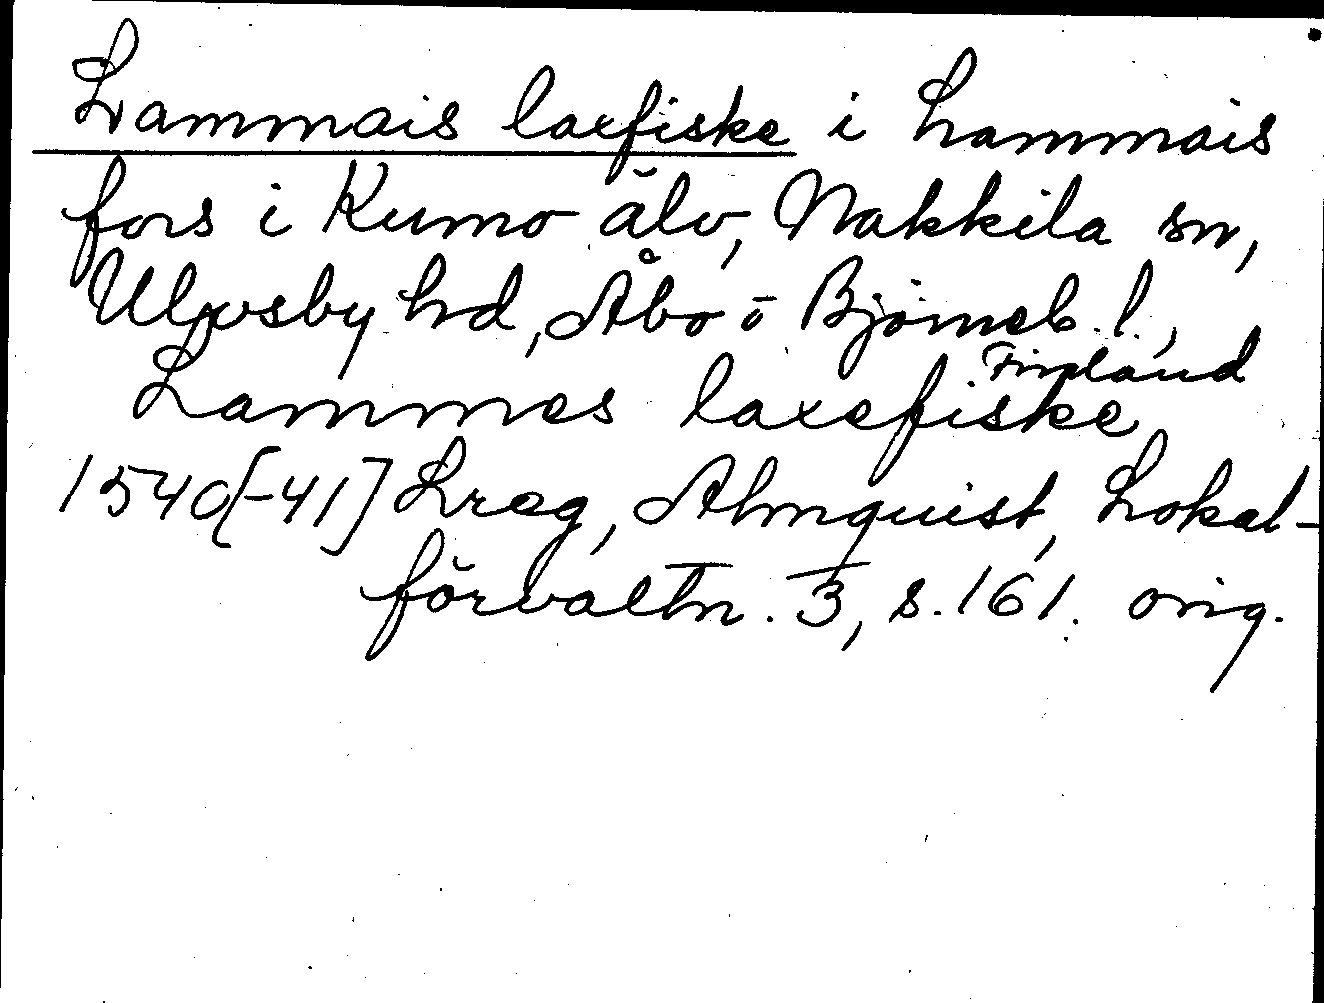 Lammais laxfiske i Lammais
fors i Kumo älv, Nakkila sn,
Ulvsby hd, Åbo o Björneb. l.,
Finland
Lammes laxefiske
1540[-41] Lreg, Almquist, Lokal-
förvaltn. 3, s. 161. orig.